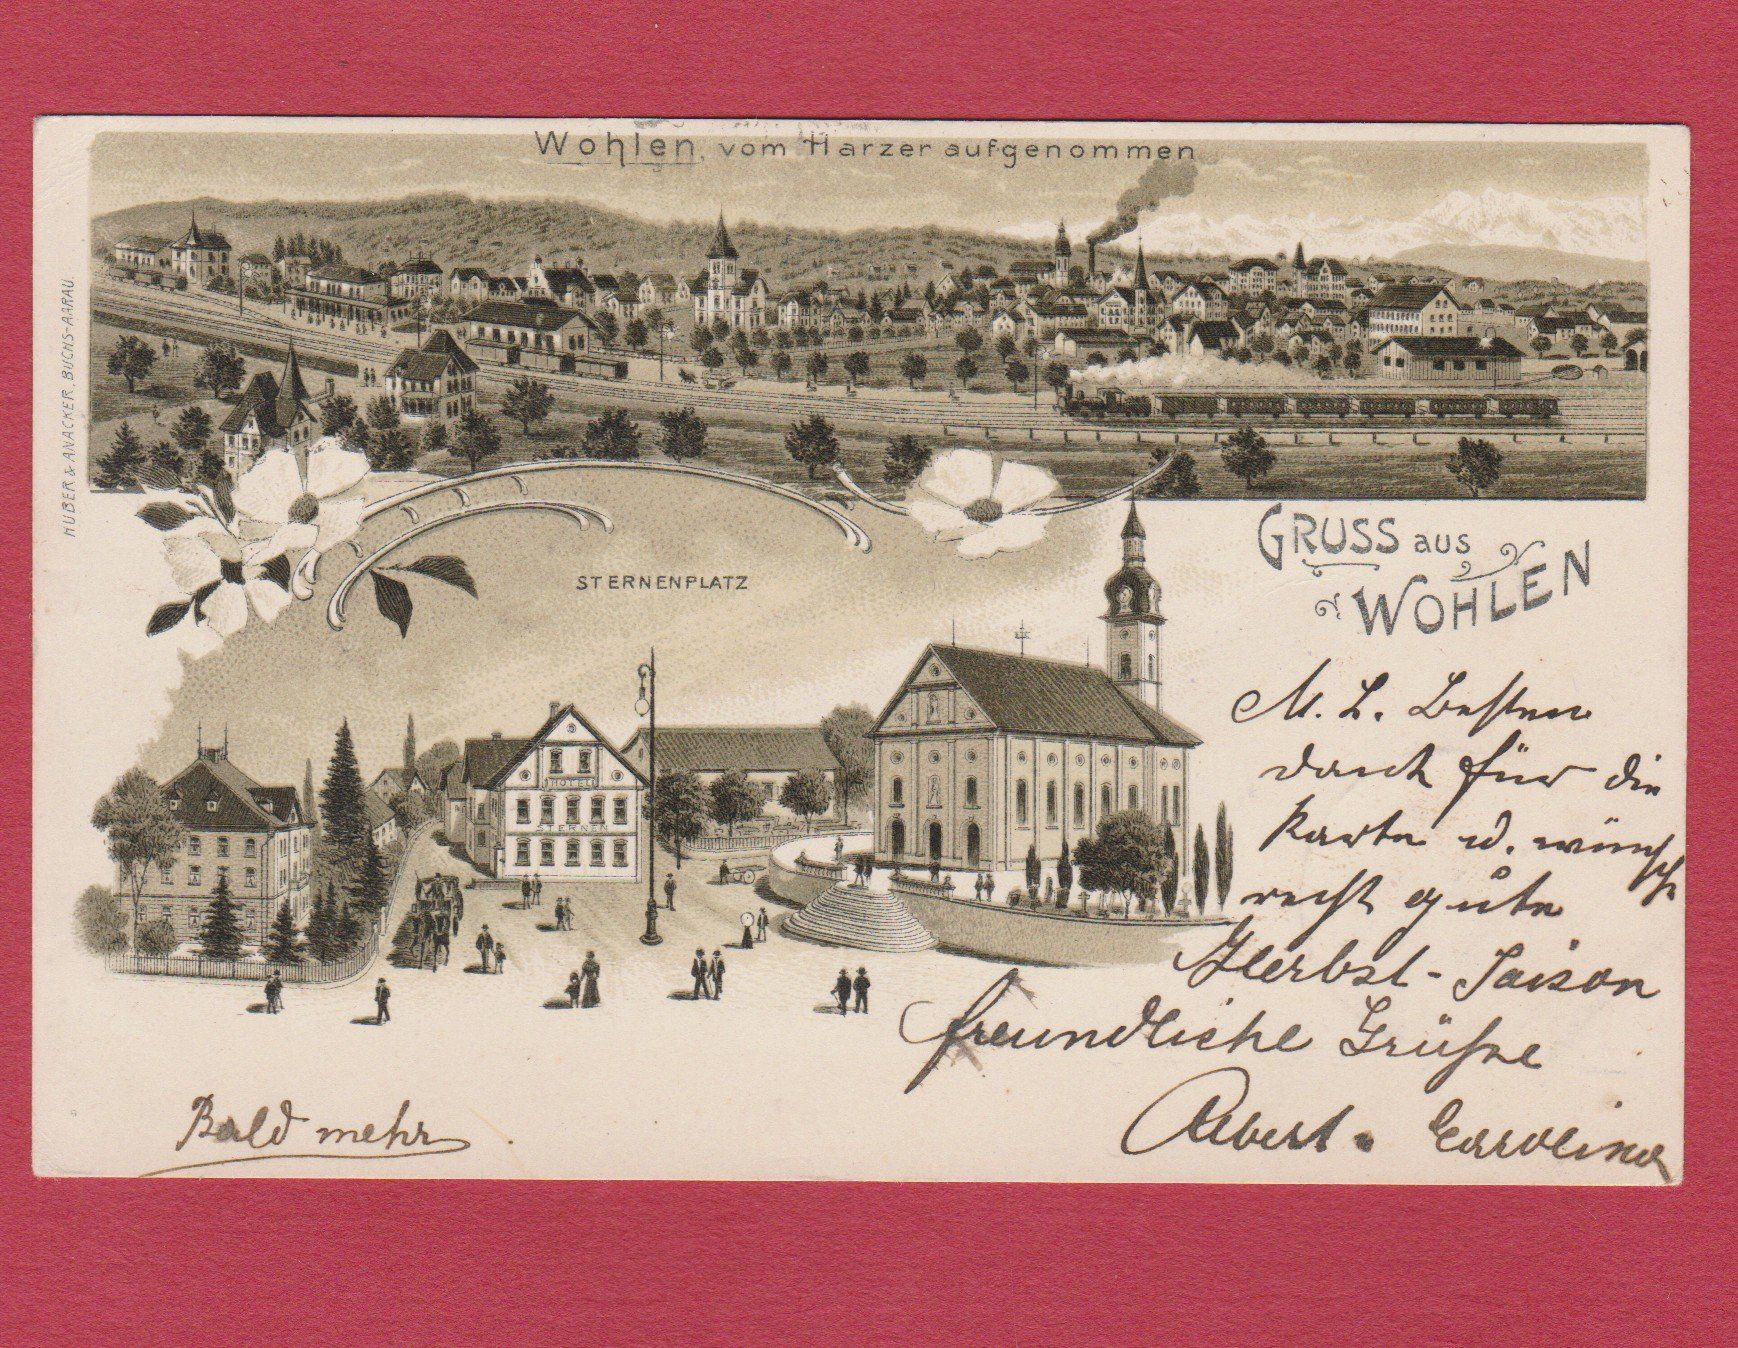 Wohlen, vom Harzer aufgenommen
HUBER & ANACKER, BUCHS-AARAU.
GRUSS aus
WOHLEN
STERNENPLATZ
HOTEL
STERNEN
M. L. Besten
Dank für die
Karte u. wünsche
recht gute
Herbst-Saison
freundliche Grüsse
Albert. Carolina
Bald mehr.